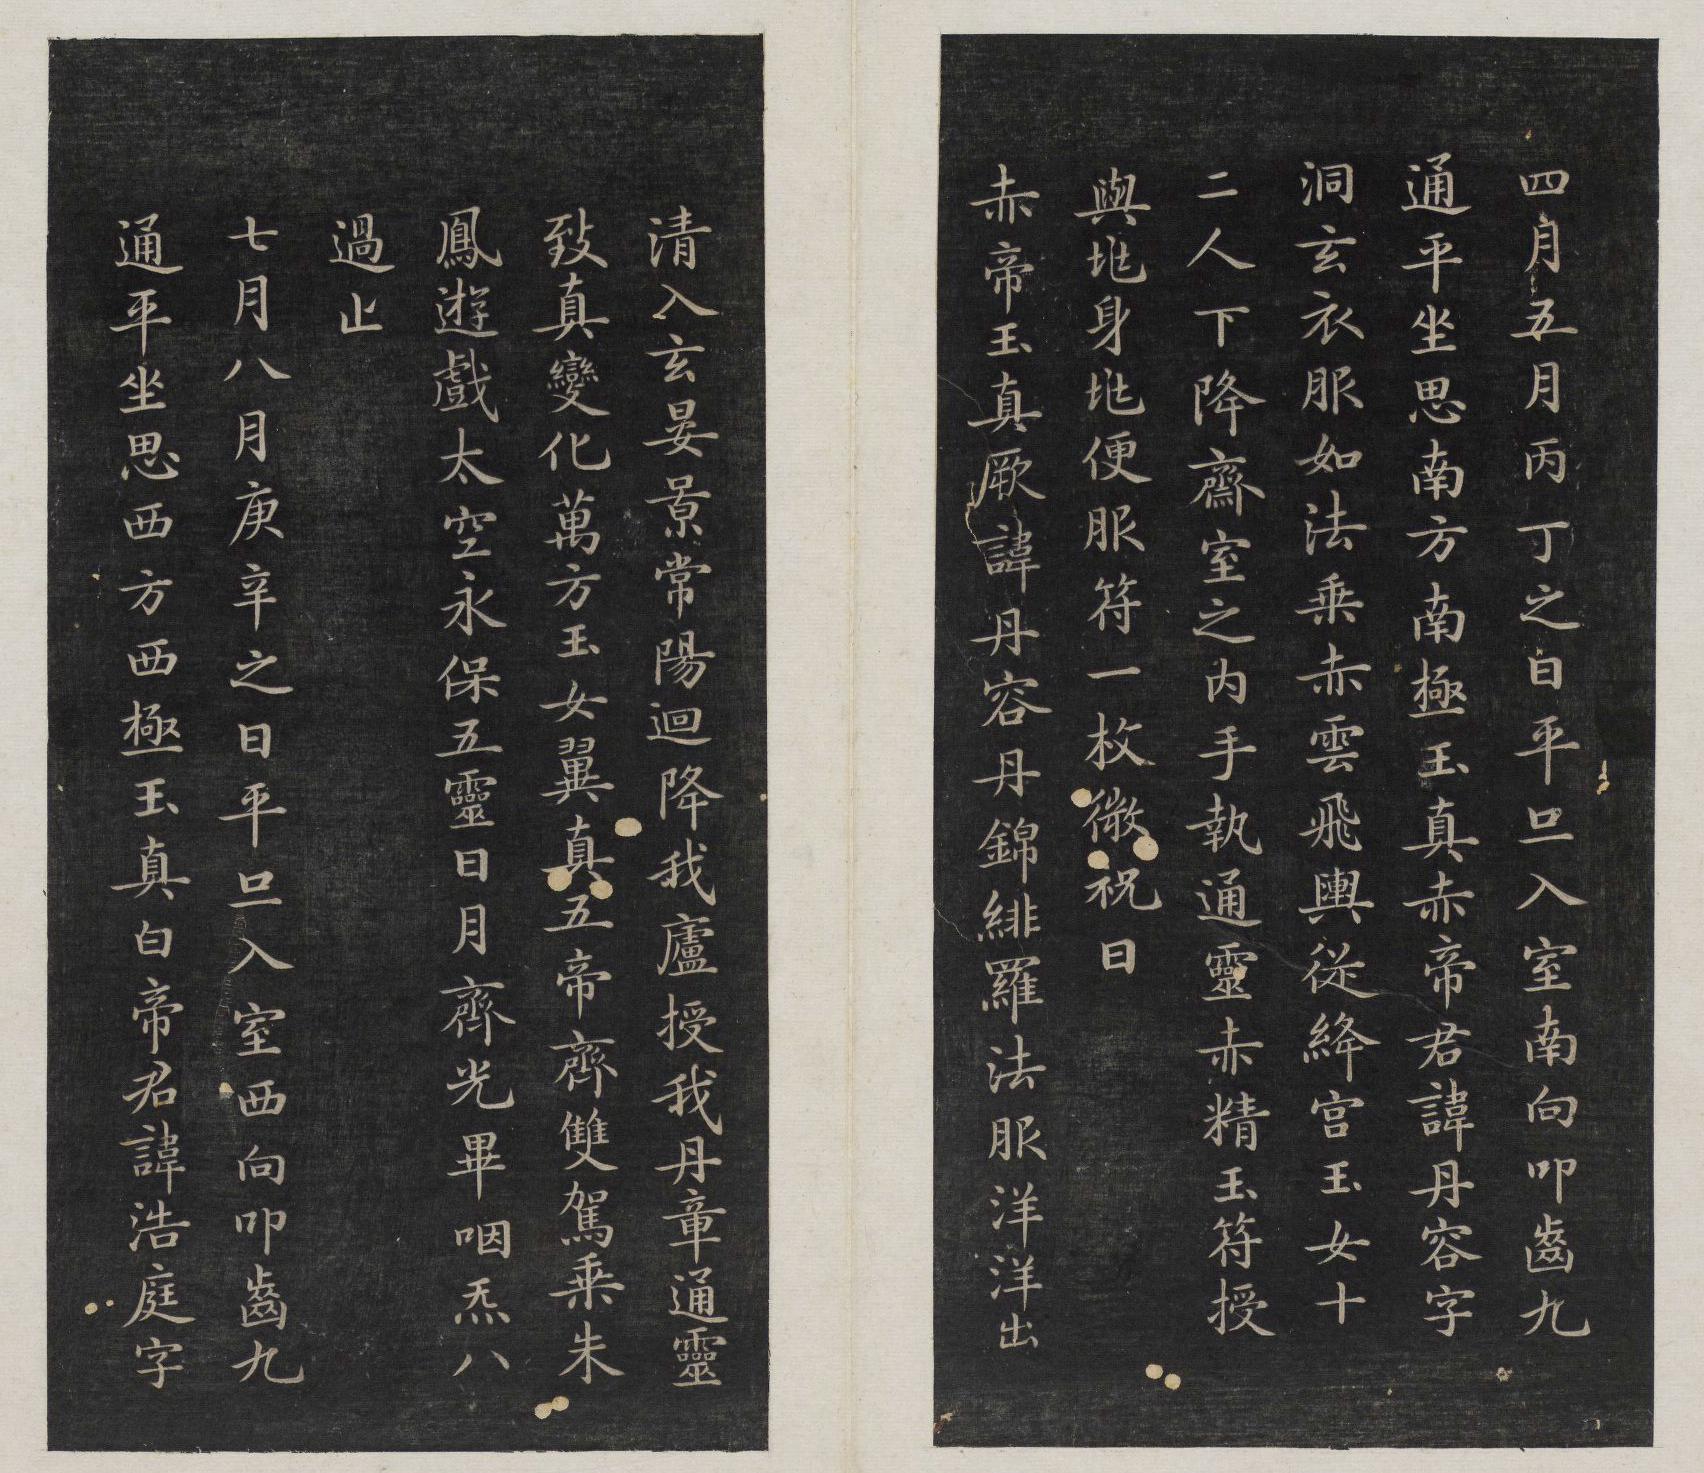 四月五月丙丁之日平旦入室南向叩齒九
通平坐思南方南極玉真赤帝君諱丹容字
洞玄衣服如法乗赤雲飛輿從絳宮玉女十
二人下降齋室之内手執通靈赤精玉符授
與㘴身㘴便服符一枚微祝曰
赤帝玉真厥諱丹容丹錦緋羅法服洋洋出
清入玄晏景常陽迴降我廬授我丹章通靈
致真變化萬方玉女翼真五帝齊雙駕乗朱
鳳遊戲太空永保五靈日月齊光畢咽炁八
過止
七月八月庚辛之日平旦入室西向叩齒九
通平坐思西方西極玉真白帝君諱浩庭字